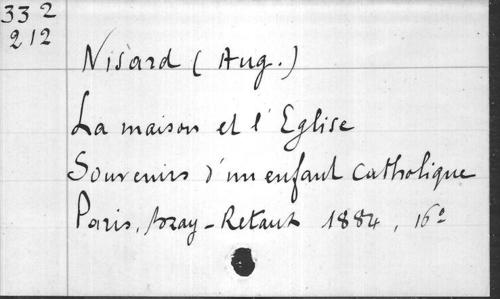 33 2
212
Nisard (Aug.)
La maison et l'Eglise
Souvenirs d'un enfant catholique
Paris, Bray-Retaux 1884, 16°